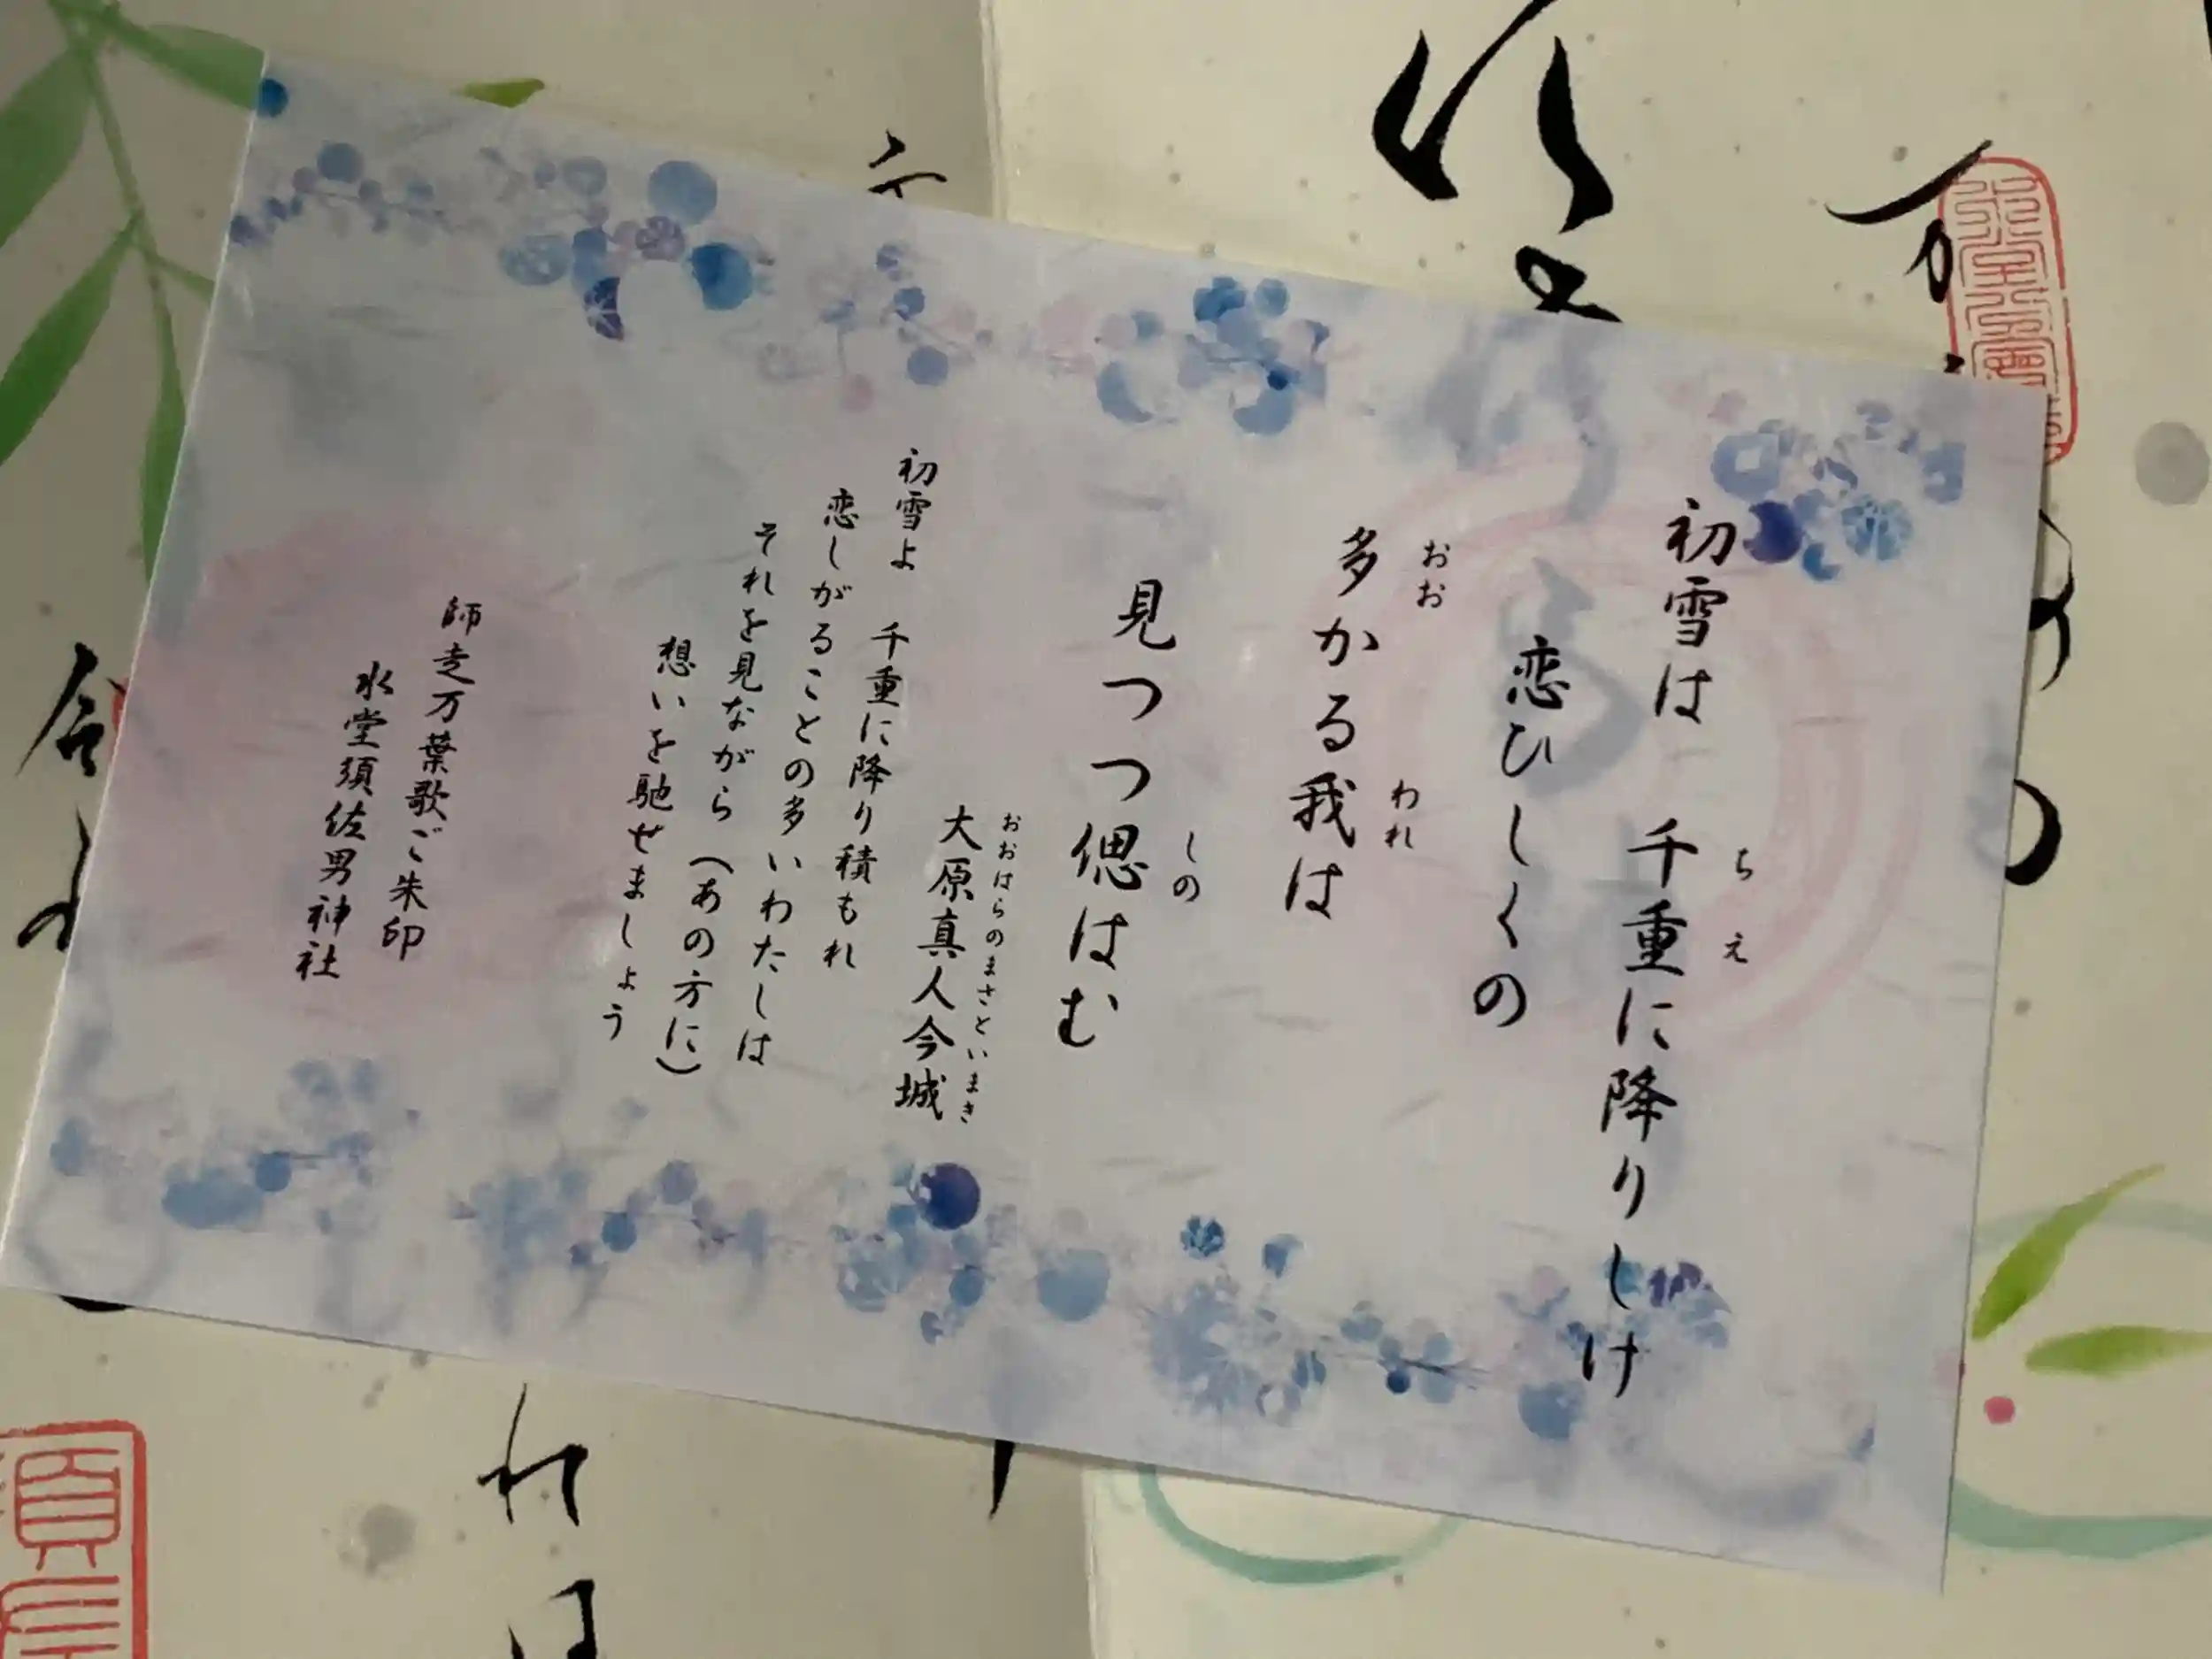 初雪は 千重に降りしけ
ちえ
恋ひしくの
多かる我は
おお われ
見つつ偲はむ
しの
大原真人今城
おおはらのまさといまき
初雪よ 千重に降り積もれ
恋しがることの多いわたしは
それを見ながら(あの方に)
想いを馳せましょう
師走万葉歌ご朱印
水堂須佐男神社